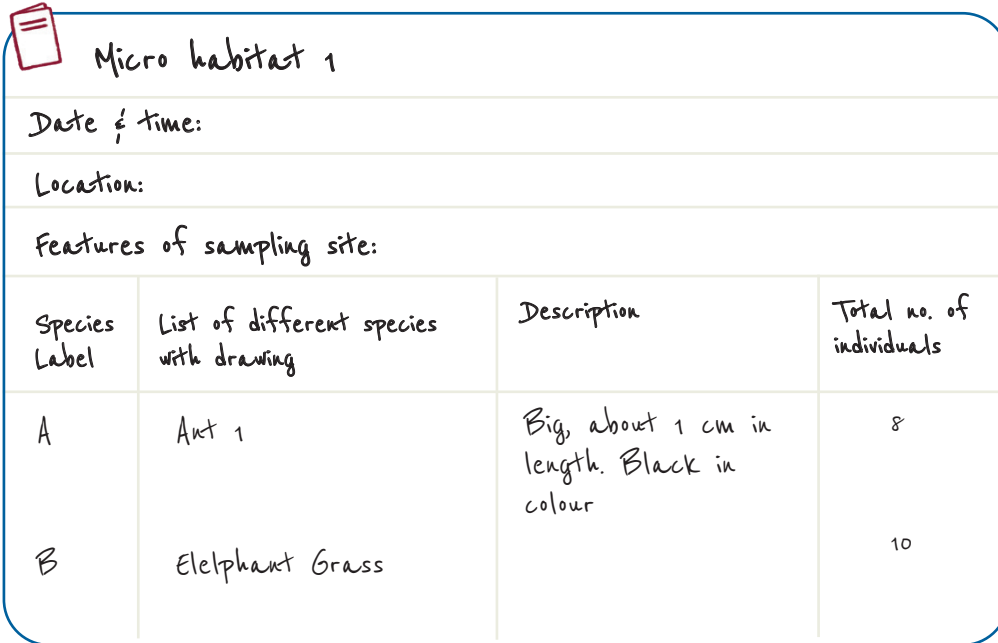 Micro habitat 1
Date & time:
Location:
Features of sampling site:
Species Label
List of different species with drawing
Description
Total no. of individuals
A
Ant 1
Big, about 1 cm in length. Black in colour
8
B
Elelphant Grass
10